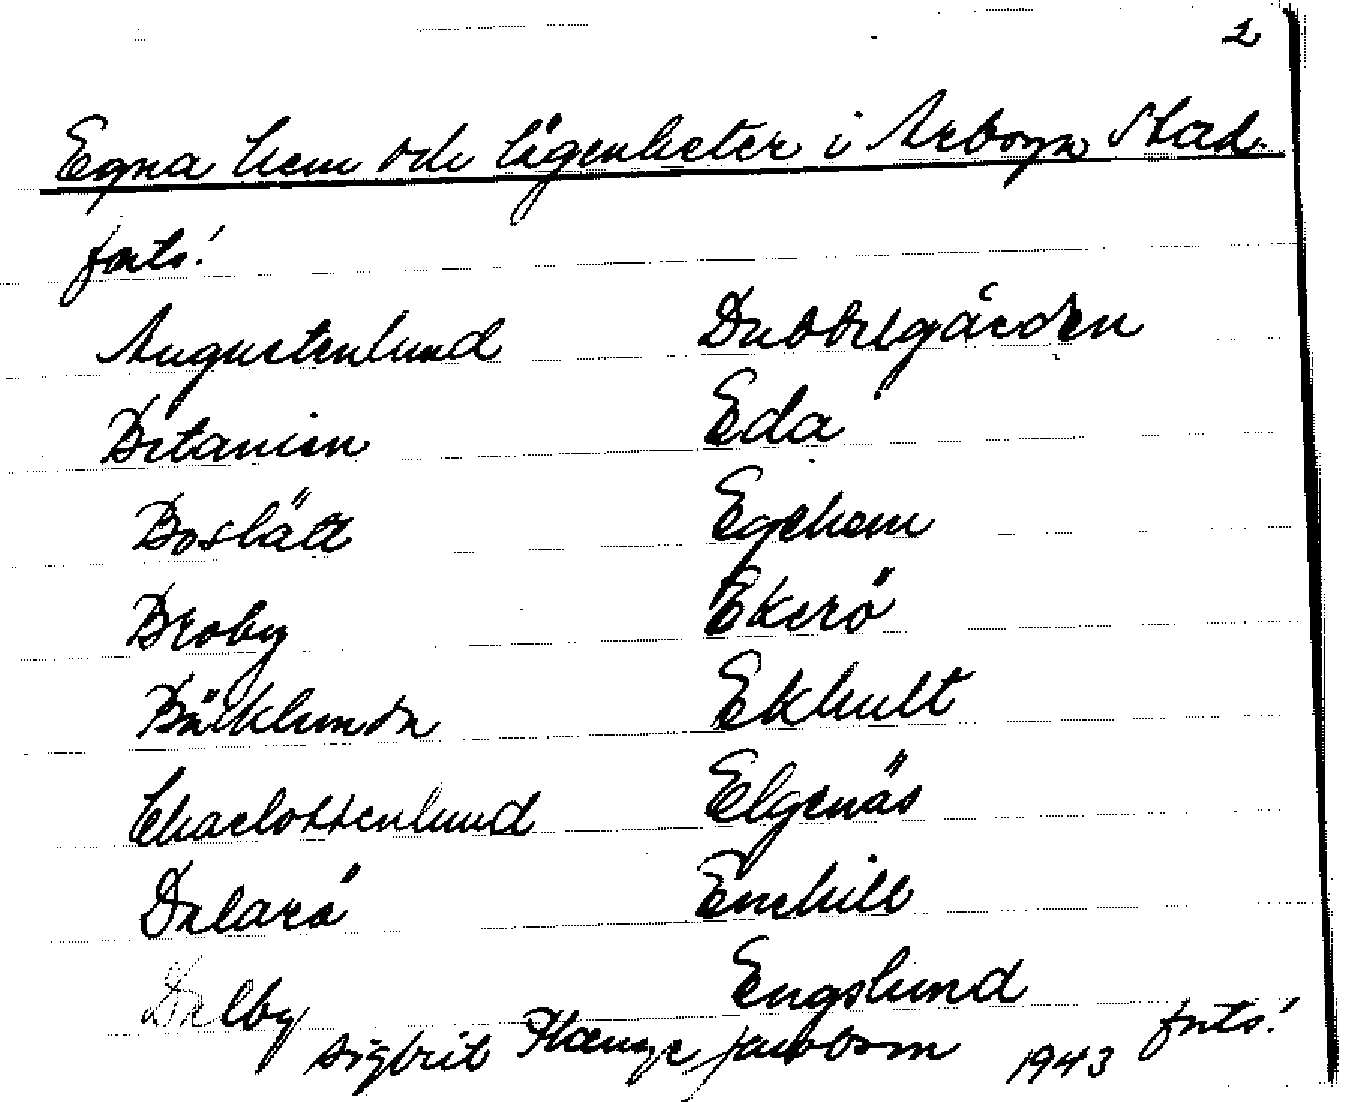 2
Egna hem och lägenheter i Arboga Stad.
forts!
Augustenlund
Betanien
Boslätt
Broby
Bäcklunda
Charlottenlund
Dalarö
Dalby
Dubbelgården
Eda
Egehem
Ekerö
Ekhult
Elgenäs
Enehill
Engslund
forts!
Sigbrit Plænge Jacobson 1943